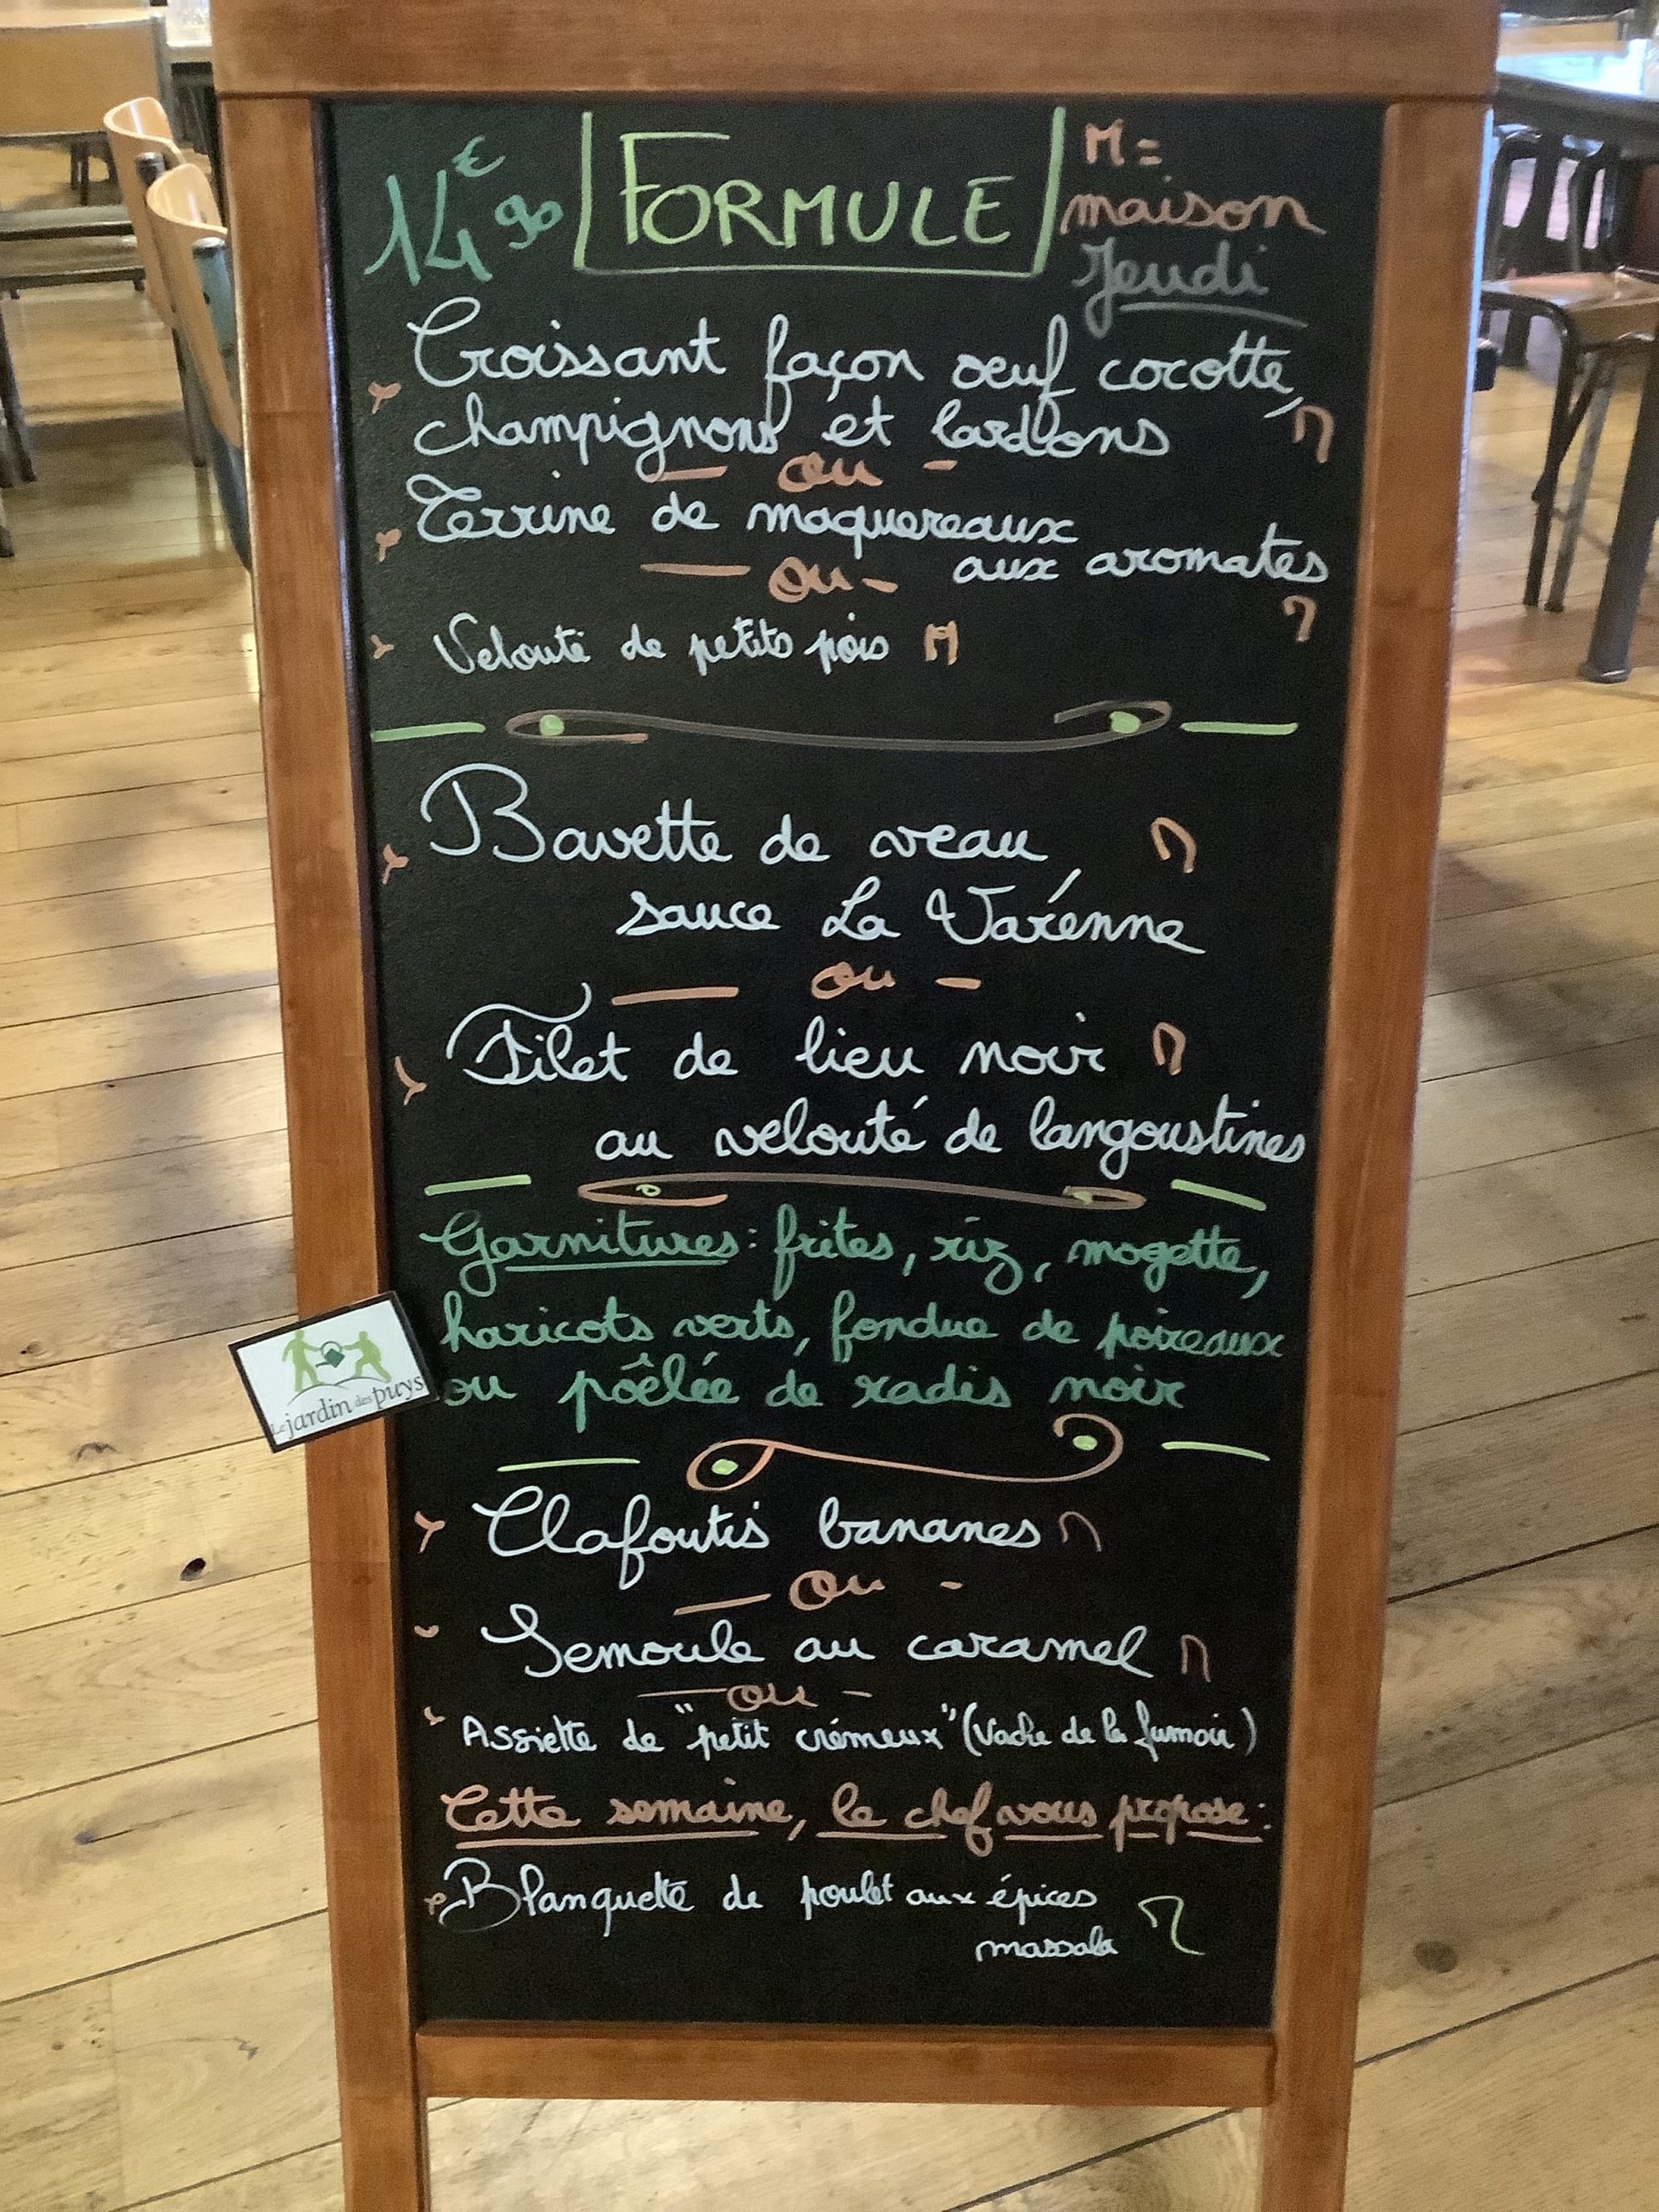 14€90 FORMULE M = maison
Jeudi
Croissant façon oeuf cocotte,
champignons et lardons M
- ou -
Terrine de maquereaux
aux aromates
- ou -
M
Velouté de petits pois M
Bavette de veau M
sauce La Varénne
- ou -
Filet de lieu noir M
au velouté de langoustines
Garnitures : frites, riz, mogette,
haricots verts, fondue de poireaux
ou pôêlée de radis noir
Le jardin des puys
Clafoutis bananes M
- ou -
Semoule au caramel M
- ou -
Assiette de "petit crémeux" (Vache de la fumoir)
Cette semaine, le chef vous propose :
Blanquette de poulet aux épices
massala M